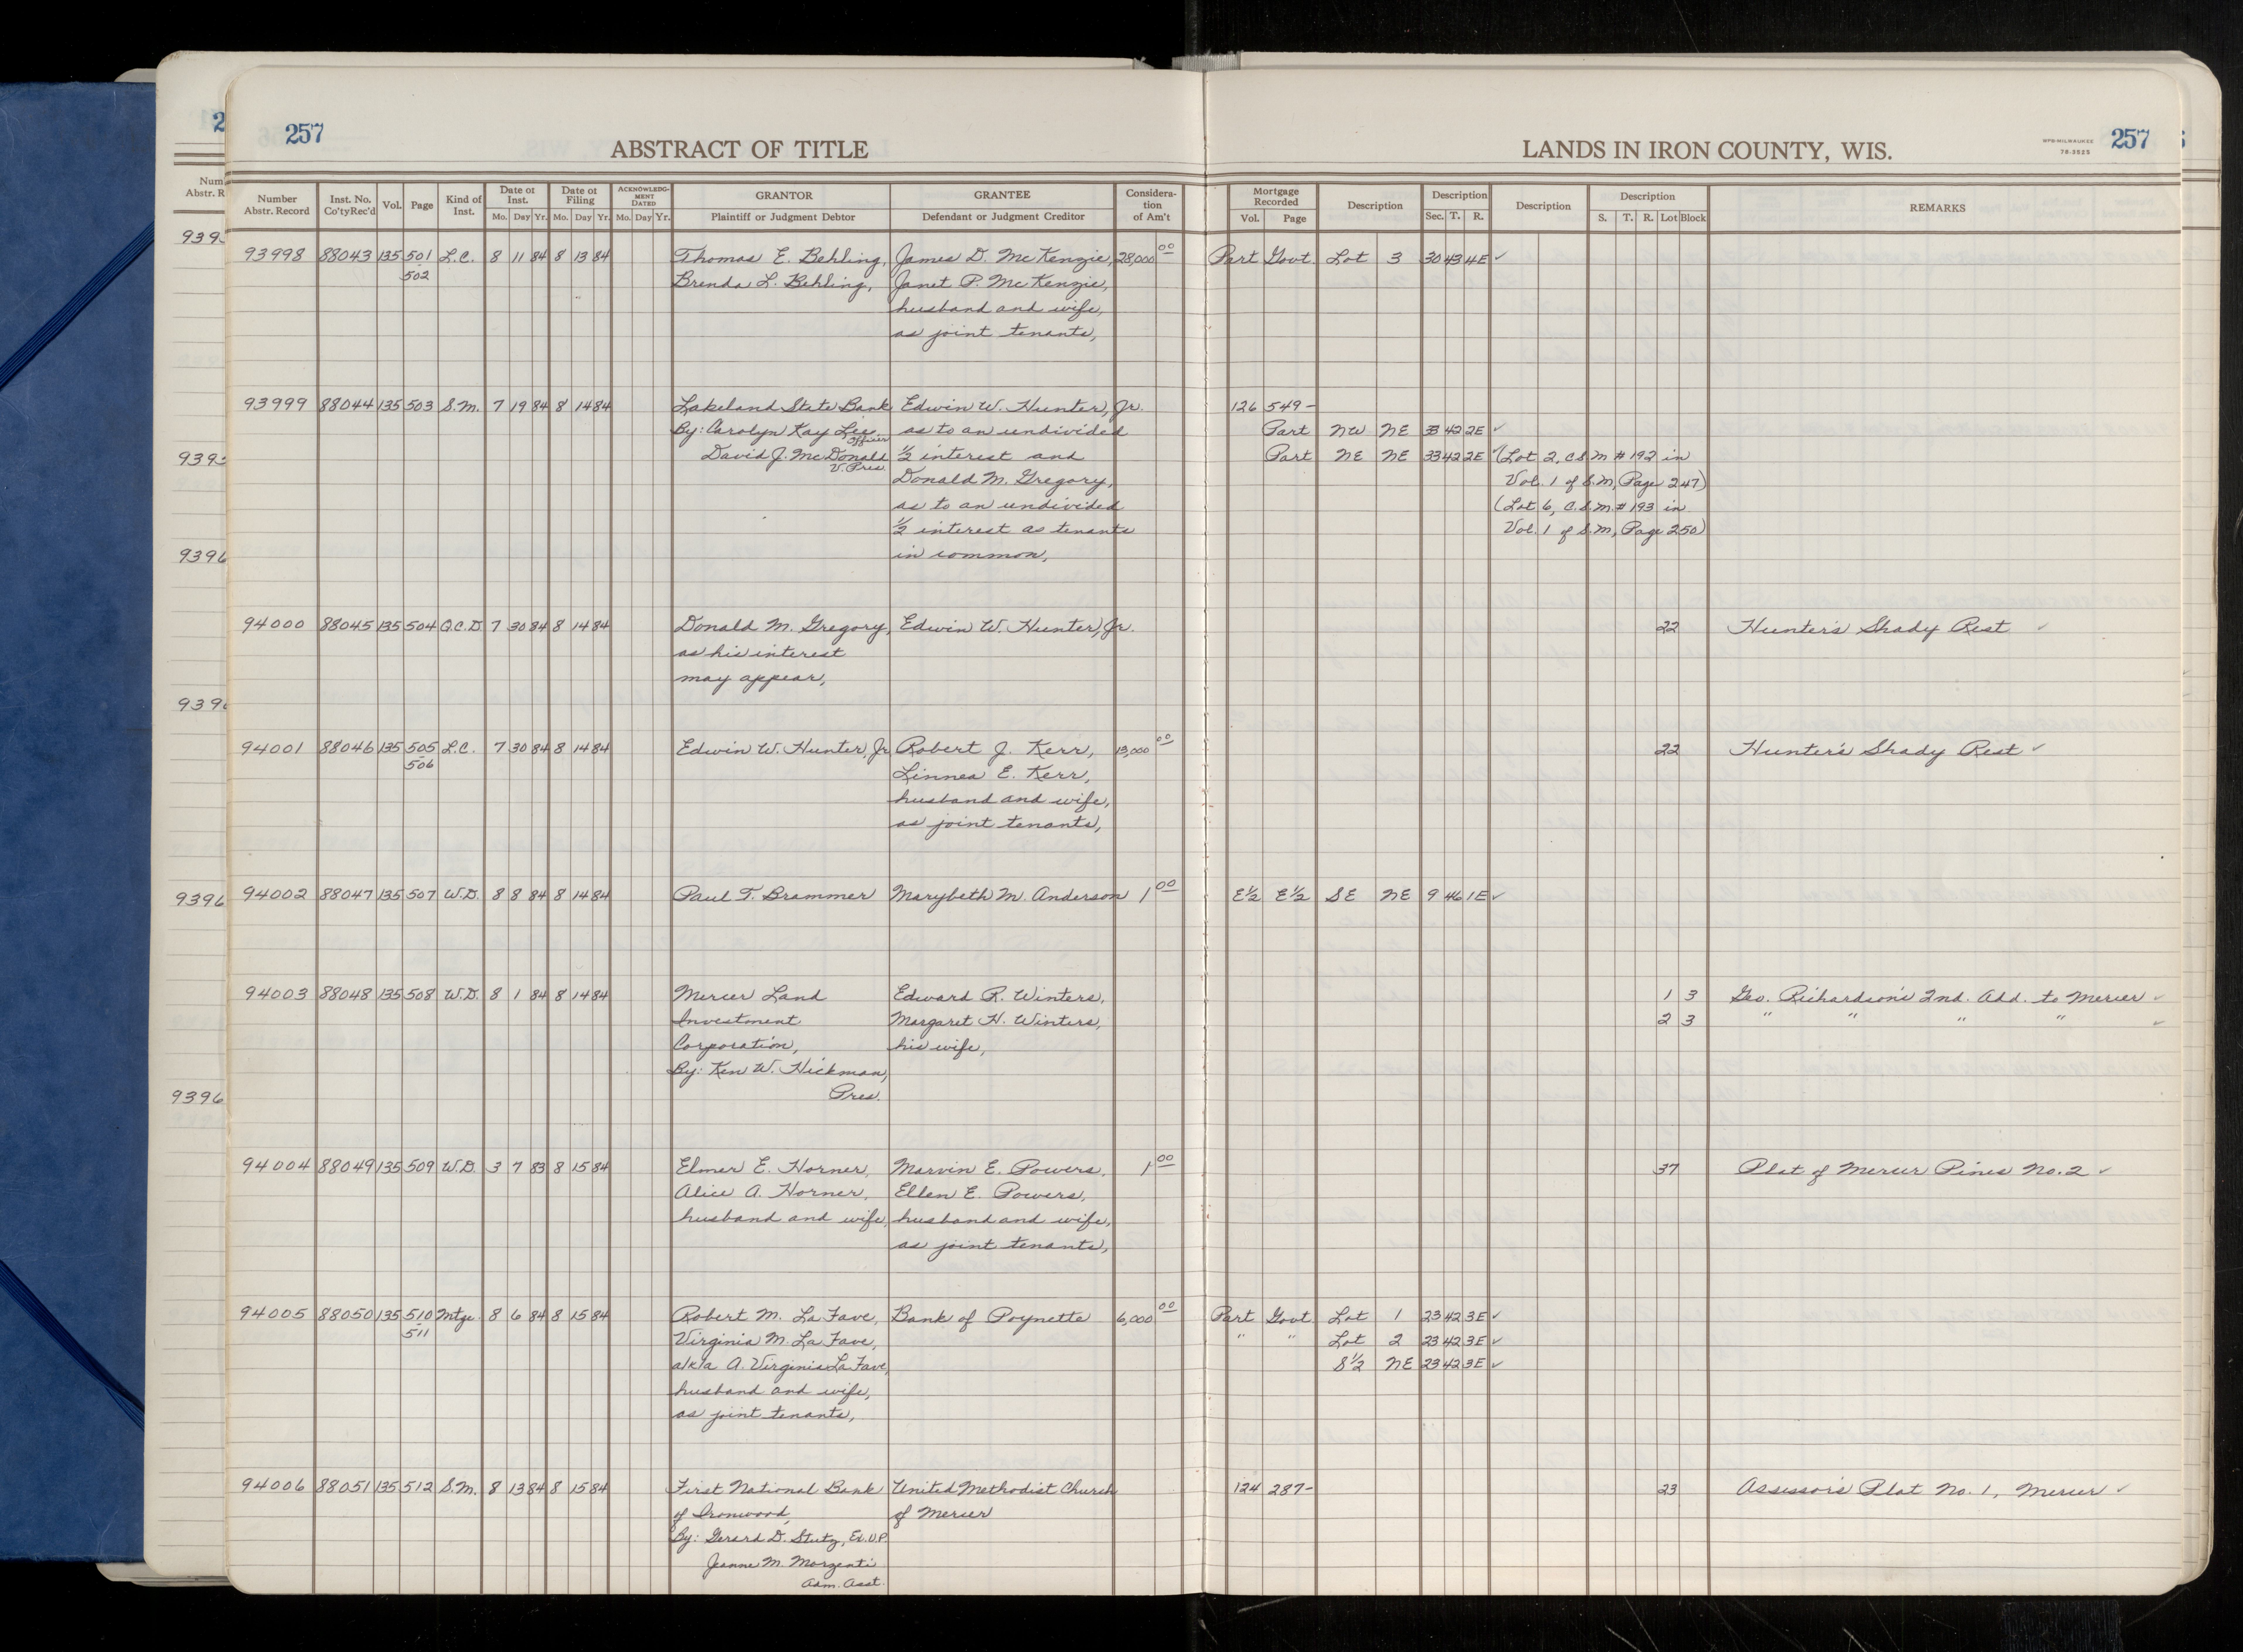 257
ABSTRACT OF TITLE
LANDS IN IRON COUNTY, WIS.
WPB-MILWAUKEE
78-3525
257
Number Abstr. Record | Inst. No. Co'ty Rec'd | Vol. | Page | Kind of Inst. | Date of Inst. Mo. Day Yr. | Date of Filing Mo. Day Yr. | ACKNOWLEDGMENT DATED Mo. Day Yr. | GRANTOR Plaintiff or Judgment Debtor | GRANTEE Defendant or Judgment Creditor | Consideration of Am't | Mortgage Recorded Vol. Page | Description | Description Sec. T. R. | Description | Description S. T. R. Lot Block | REMARKS
93998 88043 135 501 L.C. 8 11 84 8 13 84 Thomas E. Behling, James D. McKenzie, 28,000 00 Part Govt. Lot 3 30 43 4E ✓
502 Brenda L. Behling, Janet P. McKenzie,
husband and wife,
as joint tenants,
93999 88044 135 503 S.M. 7 19 84 8 14 84 Lakeland State Bank Edwin W. Hunter, Jr. 126 549-
By: Carolyn Kay Lee, Officer as to an undivided Part NW NE 33 42 2E ✓
David J. McDonald V. Pres. ½ interest and Part NE NE 33 42 2E ✓ (Lot 2, C.S.M # 192 in
Donald M. Gregory, Vol. 1 of S.M, Page 247)
as to an undivided (Lot 6, C.S.M. # 193 in
½ interest as tenants Vol. 1 of S.M, Page 250)
in common,
94000 88045 135 504 Q.C.D. 7 30 84 8 14 84 Donald M. Gregory, Edwin W. Hunter, Jr. 22 Hunter's Shady Rest ✓
as his interest
may appear,
94001 88046 135 505 L.C. 7 30 84 8 14 84 Edwin W. Hunter, Jr Robert J. Kerr, 13,000 00 22 Hunter's Shady Rest ✓
506 Linnea E. Kerr,
husband and wife,
as joint tenants,
94002 88047 135 507 W.D. 8 8 84 8 14 84 Paul T. Brammer Marybeth M. Anderson 1 00 E½ E½ SE NE 9 46 1E ✓
94003 88048 135 508 W.D. 8 1 84 8 14 84 Mercer Land Edward R. Winters, 1 3 Geo. Richardson's 2nd. Add. to Mercer ✓
Investment Margaret H. Winters, 2 3 " " " " ✓
Corporation, his wife,
By: Ken W. Hickman,
Pres.
94004 88049 135 509 W.D. 3 7 83 8 15 84 Elmer E. Horner, Marvin E. Powers, 1 00 37 Plat of Mercer Pines No. 2 ✓
Alice A. Horner, Ellen E. Powers,
husband and wife, husband and wife,
as joint tenants,
94005 88050 135 510 Mtge. 8 6 84 8 15 84 Robert M. La Fave, Bank of Poynette 6,000 00 Part Govt Lot 1 23 42 3E ✓
511 Virginia M. La Fave, " " Lot 2 23 42 3E ✓
a/k/a A. Virginia La Fave, S½ NE 23 42 3E ✓
husband and wife,
as joint tenants,
94006 88051 135 512 S.M. 8 13 84 8 15 84 First National Bank United Methodist Church 124 287- 23 Assessor's Plat No. 1, Mercer ✓
of Ironwood, of Mercer
By: Gerard D. Stutz, Ex.V.P.
Jeanne M. Morzenti
Adm. Asst.